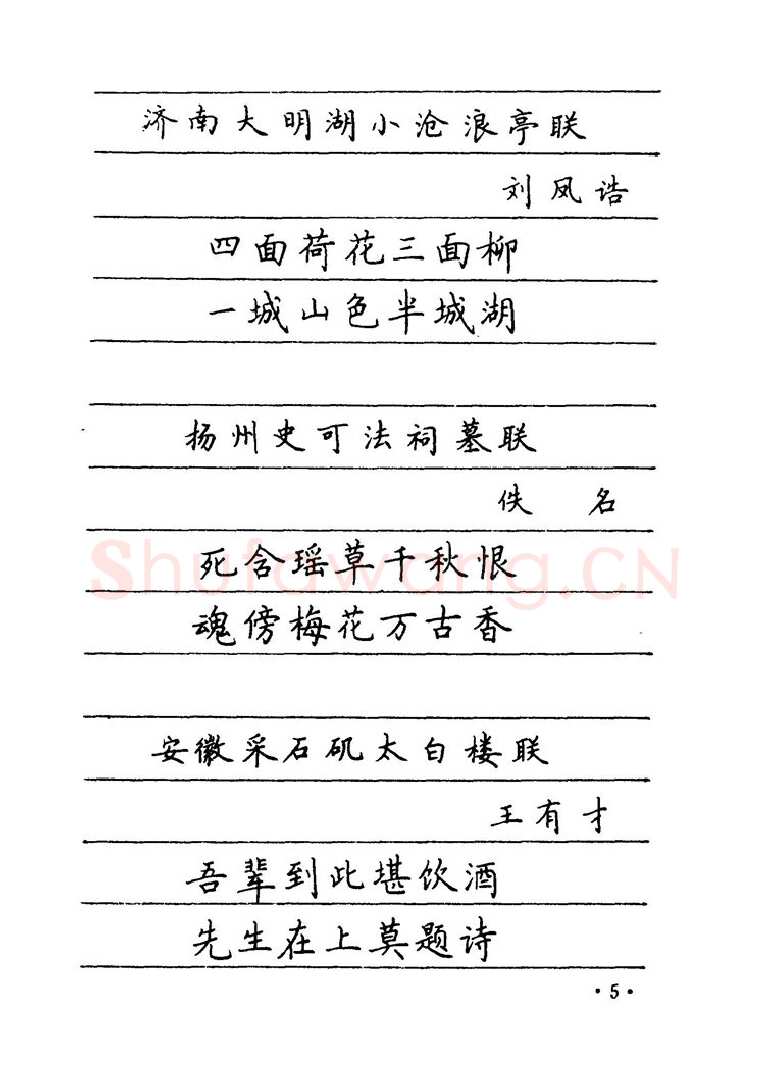 济南大明湖小沧浪亭联
刘凤诰
四面荷花三面柳
一城山色半城湖
扬州史可法祠墓联
佚 名
死含瑶草千秋恨
魂傍梅花万古香
Shufawang.CN
安徽采石矶太白楼联
王有才
吾辈到此堪饮酒
先生在上莫题诗
·5·